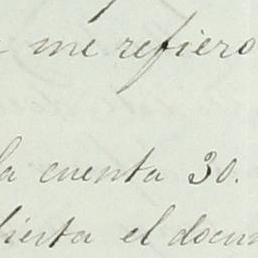 me refiero
la cuenta 30.
el docum